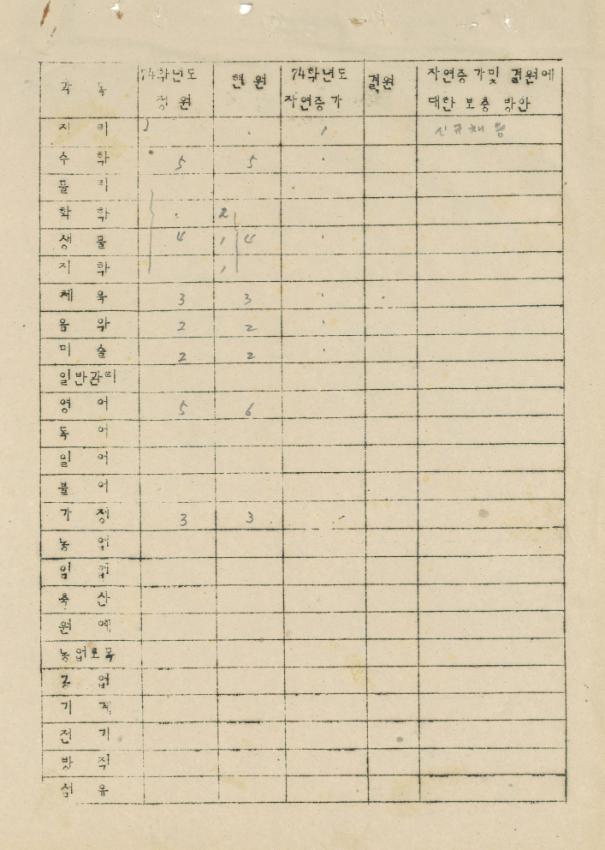 각 동 74학년도 정원 현원 74학년도 자연증가 결원 자연증가및 결원에 대한 보충 방안
지 리 신규채용
수 학 5 5
물 리
화 학 2
생 물 4 1 4
지 학 1
체 육 3 3
음 악 2 2
미 술 2 2
일반관리
영 어 5 6
독 어
일 어
불 어
가 정 3 3
농 업
임 업
축 산
원 예
농업토목
공 업
기 계
전 기
방 직
섬 유